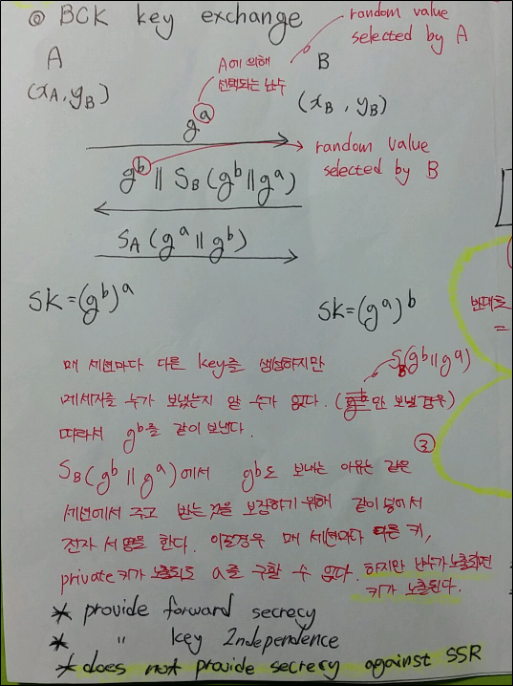 ◎ BCK key exchange
random value
selected by A
A
A에 의해
선택되는 난수
B
(xA, yB)
(xB, yB)
g^a
random value
selected by B
g^b || S_B(g^b || g^a)
S_A(g^a || g^b)
SK=(g^b)^a
SK=(g^a)^b
반대로
=
매 세션마다 다른 key를 생성하지만
S_B(g^b || g^a)
메세지를 누가 보냈는지 알 수가 없다. (만 보낼경우)
따라서 g^b를 같이 보낸다.
③
S_B(g^b || g^a)에서 g^b도 보내는 이유는 같은
세션에서 주고 받는 것을 보장하기 위해 같이 넣어서
전자 서명을 한다. 이럴경우 매 세션마다 다른 키,
private키가 노출되도 a를 구할 수 없다. 하지만 난수가 노출되면
키가 노출된다.
* provide forward secrecy
* " key Independence
* does not provide secrecy against SSR